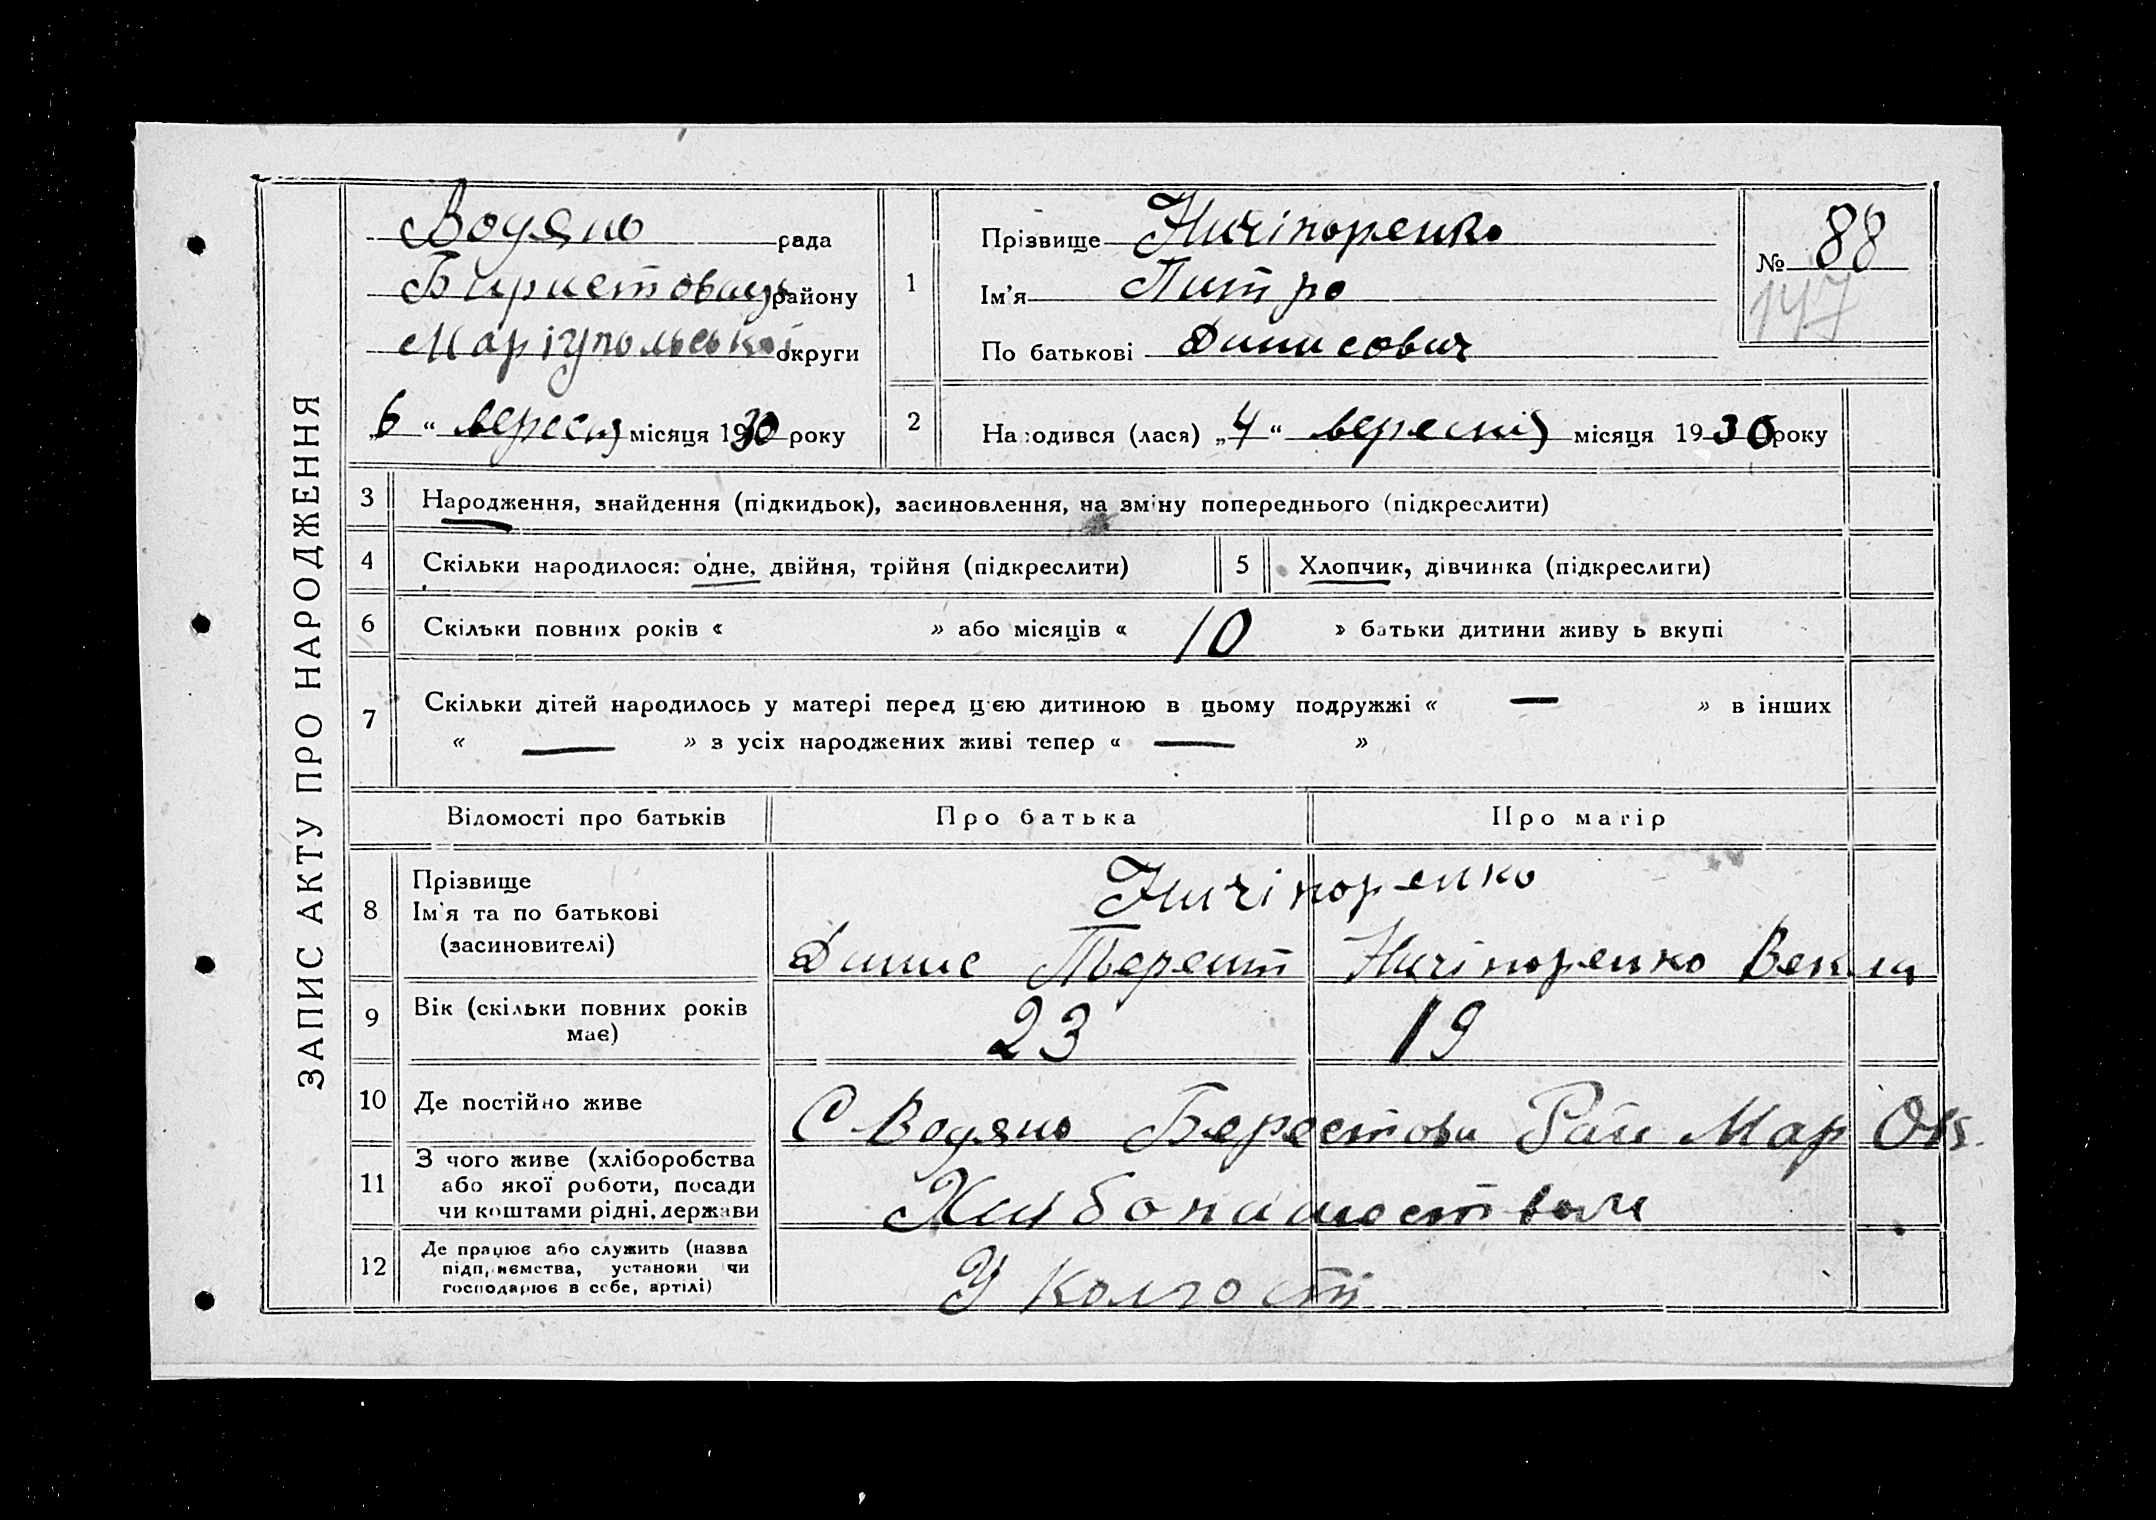 ЗАПИС АКТУ ПРО НАРОДЖЕННЯ
Водяно рада
Биристовщ району
Маріупольської округи
„6“ вересня місяця 1930 року
1
Прізвище Ничіпоренко
Ім'я Питро
По батькові Динисович
№ 88
147
2 Народився (лася) „4“ вересня місяця 1930 року
3 Народження, знайдення (підкидьок), засиновлення, на зміну попереднього (підкреслити)
4 Скільки народилося: одне, двійня, трійня (підкреслити)
5 Хлопчик, дівчинка (підкреслити)
6 Скільки повних років « » або місяців « 10 » батьки дитини живуть вкупі
7 Скільки дітей народилось у матері перед цією дитиною в цьому подружжі « — » в інших
« — » з усіх народжених живі тепер « — »
Відомості про батьків Про батька Про матір
8 Прізвище
Ім'я та по батькові
(засиновителі)
Ничіпоренко
Динис Терент Ничіпоренко Векла
9 Вік (скільки повних років
має)
23 19
10 Де постійно живе
С Водяно Берестови Рай Мар Окр.
11 З чого живе (хліборобства
або якої роботи, посади
чи коштами рідні, держави
Хлибопашоством
12 Де працює або служить (назва
підприємства, установи чи
господарює в себе, артілі)
У колгості